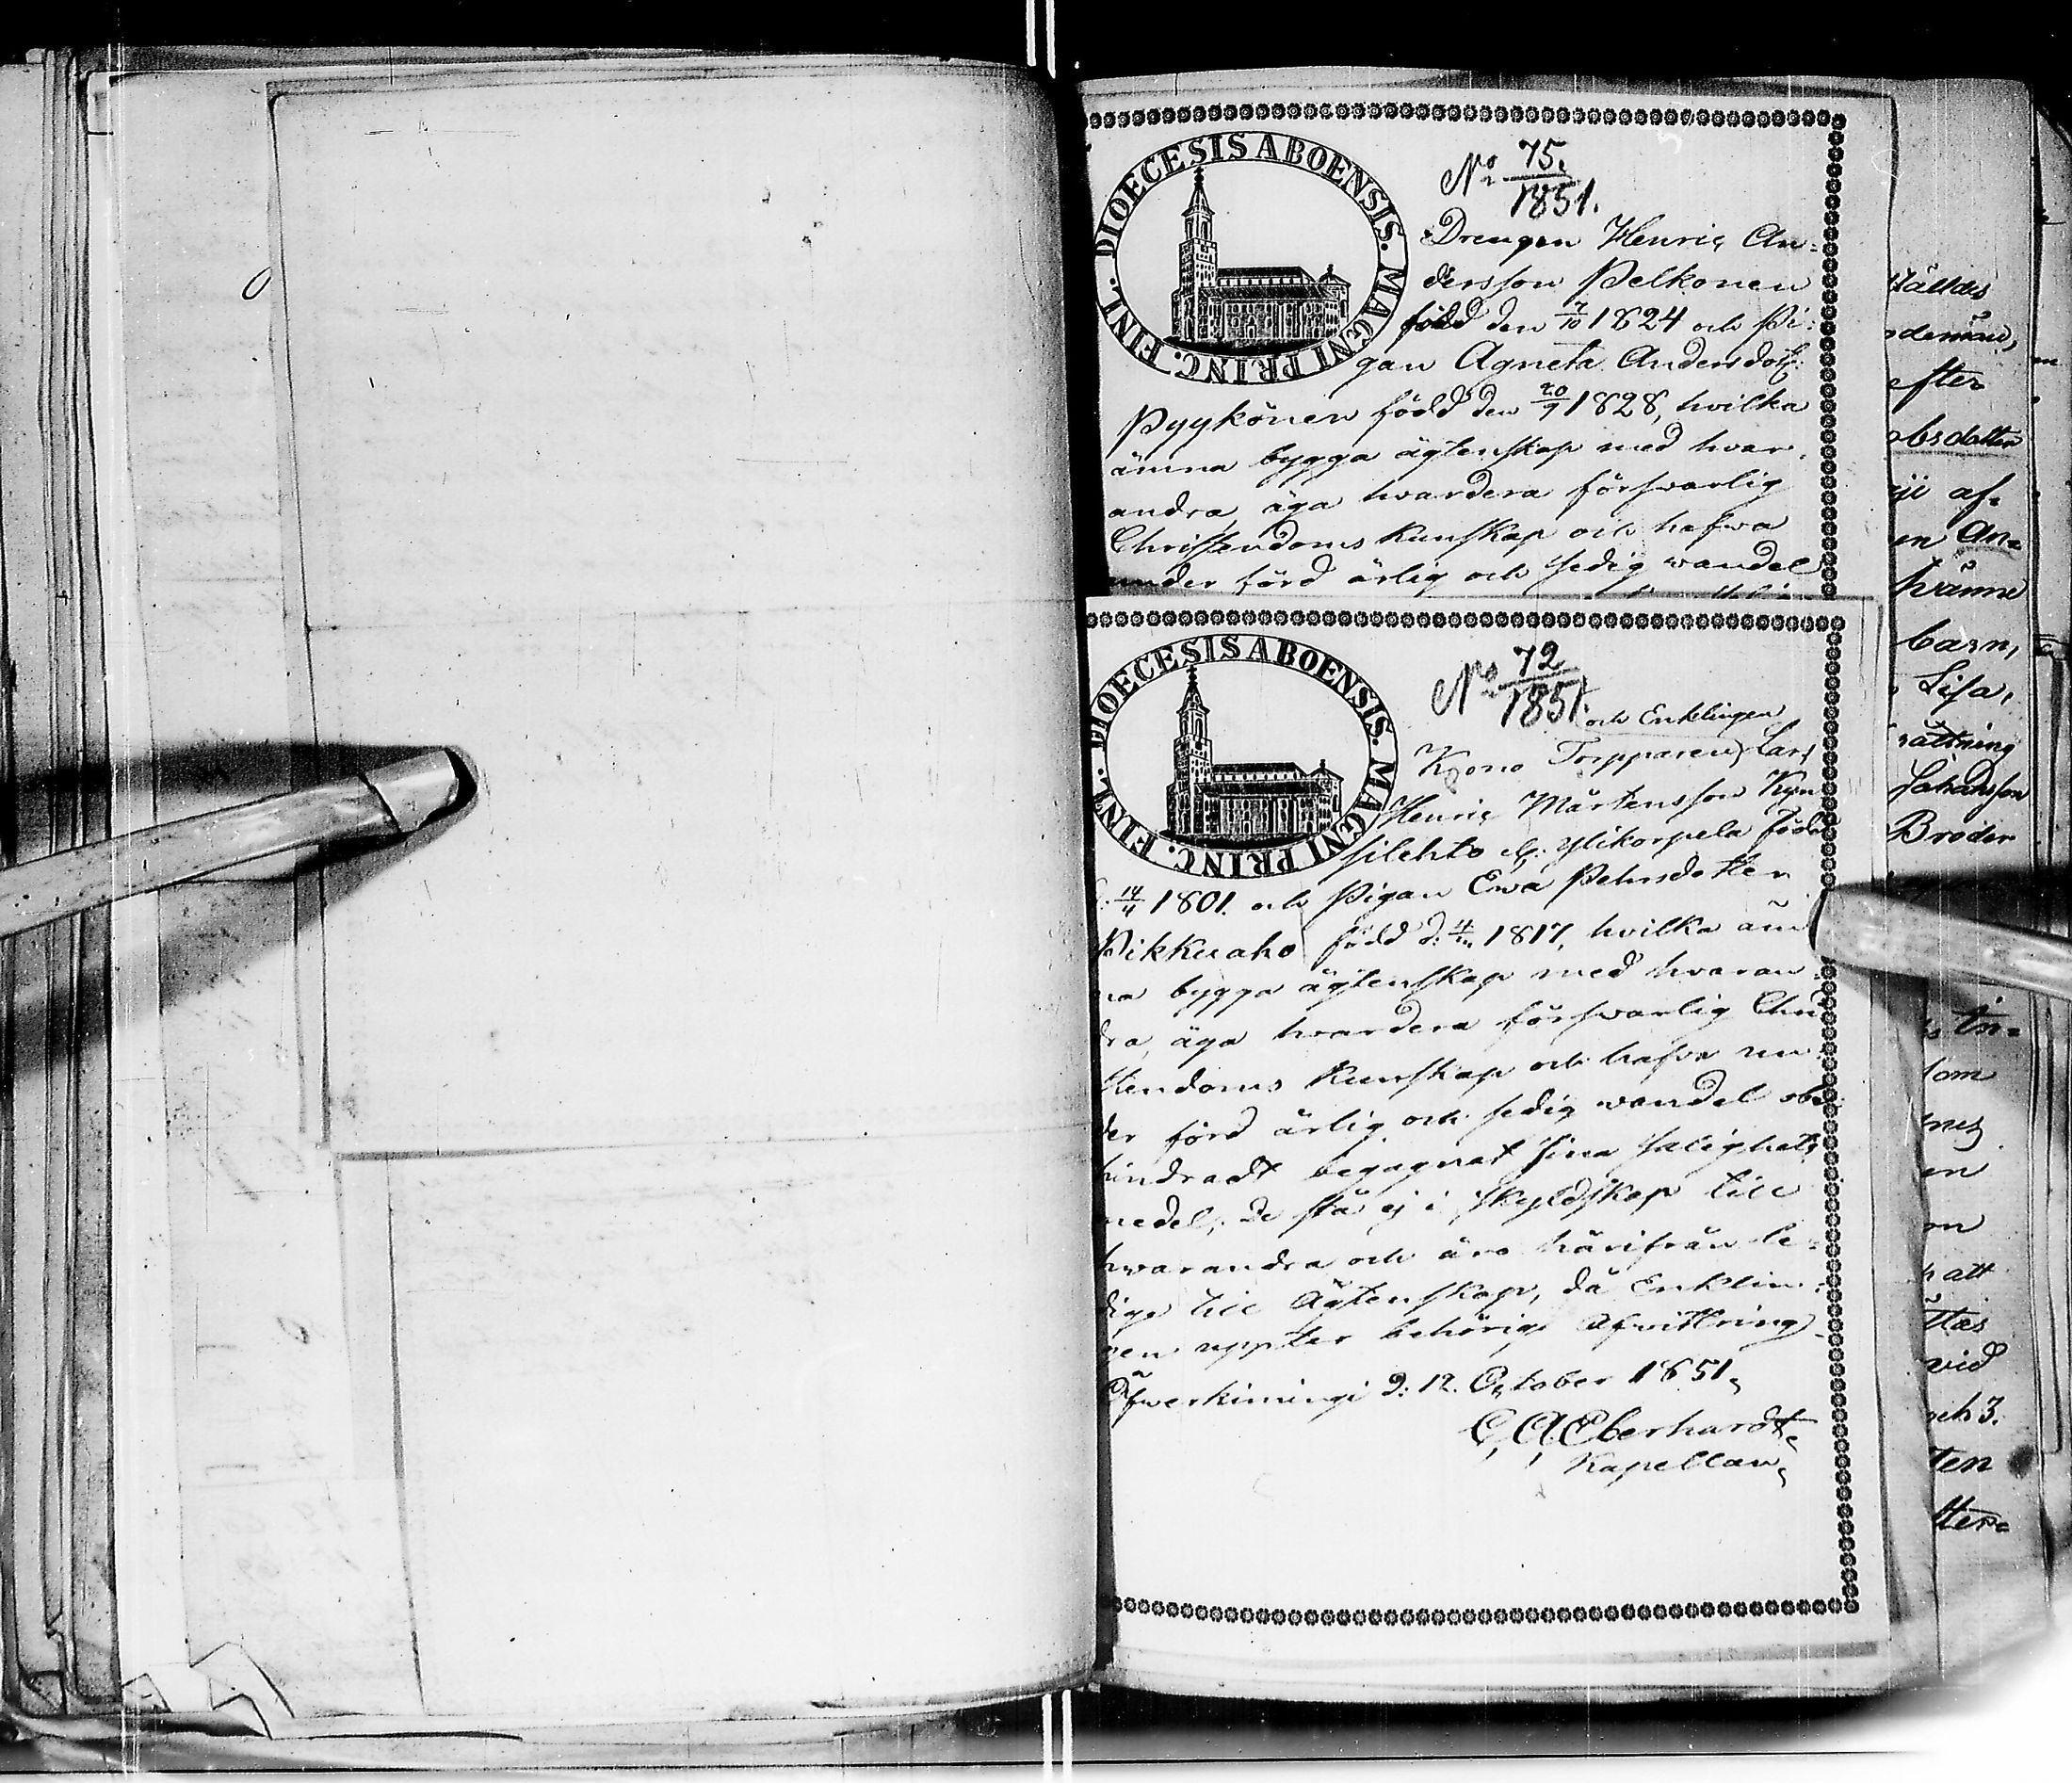 DIOECESIS ABOENSIS. MAGNI PRINC. FINL.
No 75.
1851.
Drengen Henric An-
dersson Pelkonen
född den 7/10 1824 och Pi:
gan Agneta Andersdott:
Pyykönen född den 20/9 1828, hvilka
ämna bygga ägtenskap med hvar-
andra, äga hvardera förswarlig
Christendoms kunskap och hafwa
under förd ärlig och sedig wandel
DIOECESIS ABOENSIS. MAGNI PRINC. FINL.
No 72
1851.
och Enklingen
Krono Torpparen Lars
Henric Mårtensson Kyn
silehto l. Ylikorpela född
1801. och Pigan Ewa Pehrsdotter
Pikkuaho född d: 1817, hvilka äm
na bygga ägtenskap med hvaran
dra, äga hvardera förswarlig Chri
stendoms kunskap och hafva un
der förd ärlig och sedig wandel obe
hindradt begagnat sina salighets
medel; De stå ej i skyldskap till
hwarandra och äro härifrån le-
diga till Ägtenskap, då Enklin-
gen uppter behörig afwittring
Öfwerkiimingi d: 12. October 1851.
C. A. Eberhardt
Kapellan
ställdes
odemän,
efter
obsdotter
iji af-
en An-
hvänne
barn,
Lisa,
rättning
Johansson
Broder
in-
som
nes
en
on
att
ttas
vid
och 3.
ten
tter